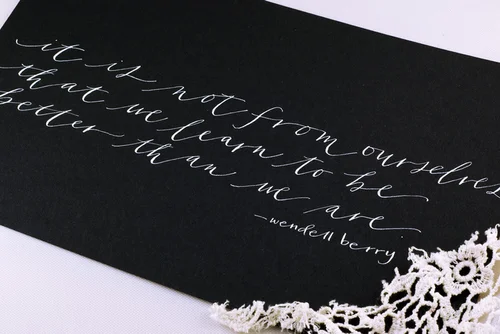 it is not from ourselves
that we learn to be
better than we are.
—wendell berry